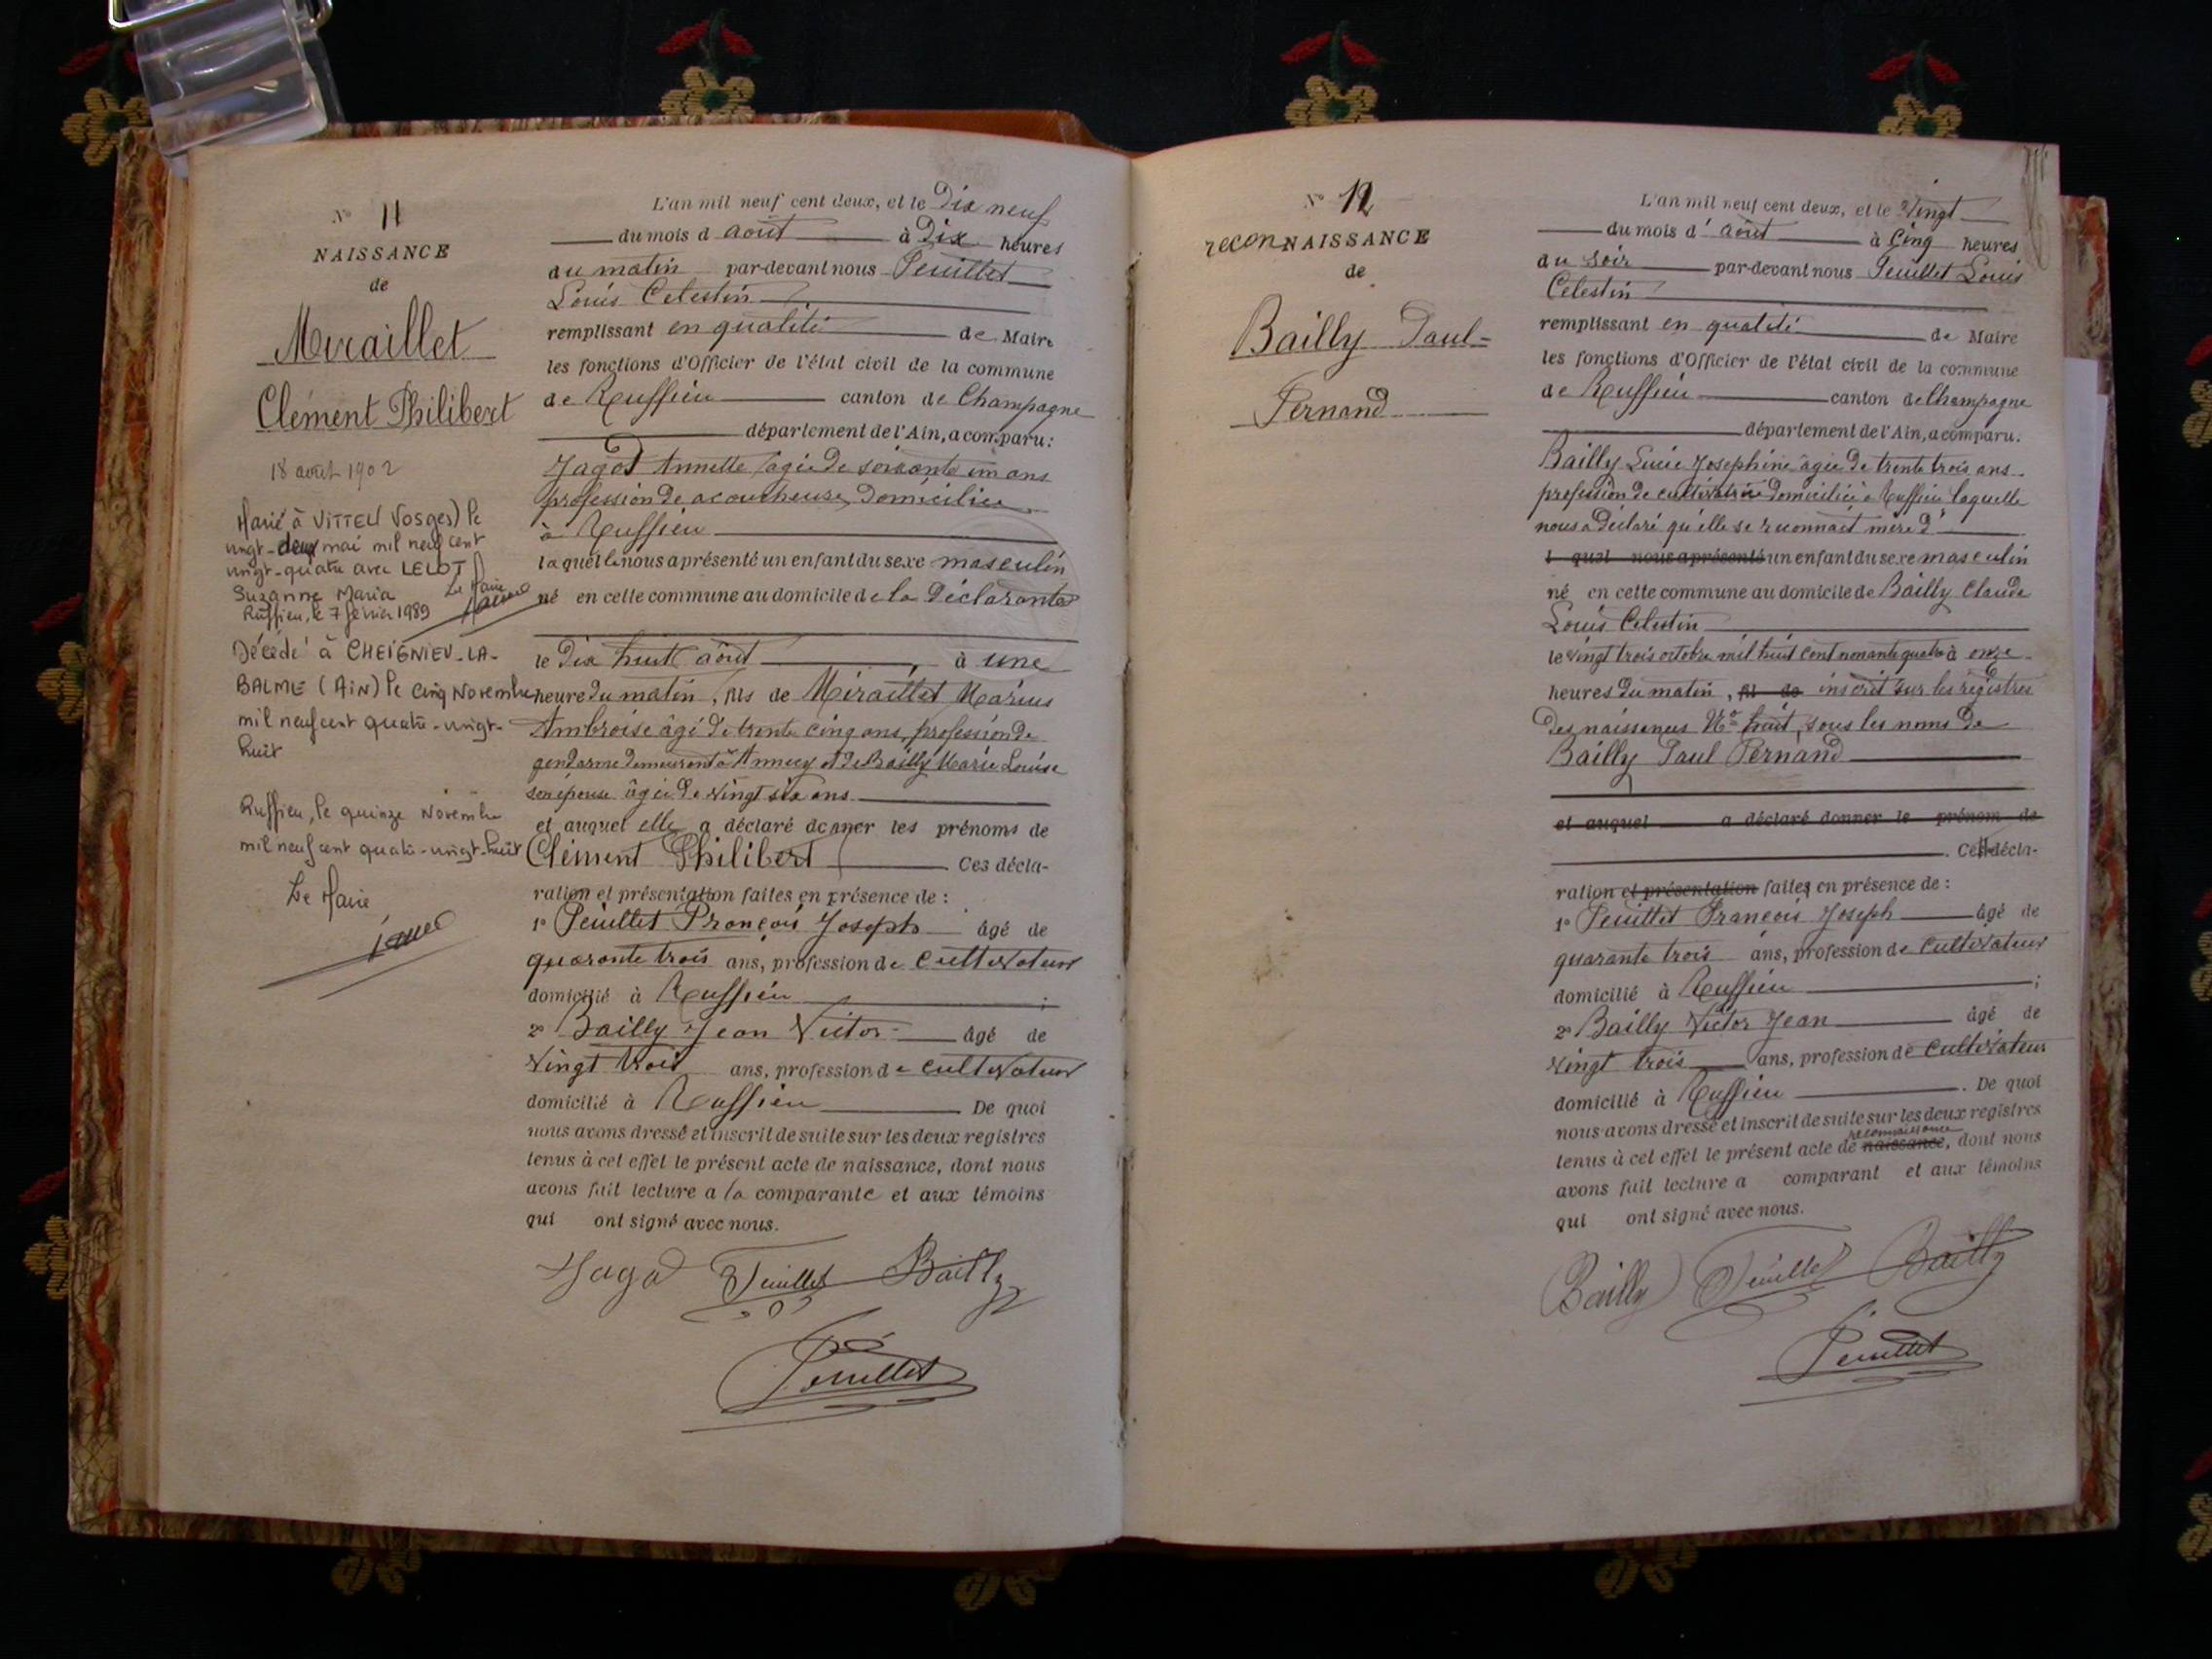 N° 11
NAISSANCE
de
Miraillet
Clément Philibert
18 août 1902
Marié à VITTEL (Vosges) le
vingt-deux mai mil neuf cent
vingt-quatre avec LELOT
Suzanne Maria
Ruffieu, le 7 février 1989
Le Maire
Décédé à CHEIGNIEU-LA-
BALME (AIN) le cinq Novembre
mil neuf cent quatre-vingt-
huit
Ruffieu, le quinze Novembre
mil neuf cent quatre-vingt-huit
Le Maire
L'an mil neuf cent deux, et le Dix neuf
du mois d août à Dix heures
du matin par-devant nous Feuillet
Louis Celestin
remplissant en qualité de Maire
les fonctions d'Officier de l'état civil de la commune
de Ruffieu canton de Champagne
département de l'Ain, a comparu:
Jagot Annette âgée de soixante un ans
profession de acoucheuse, domiciliée
à Ruffieu
laquelle nous a présenté un enfant du sexe masculin
né en cette commune au domicile de la déclarante
le dix huit août, à une
heure du matin, fils de Miraillet Marius
Ambroise âgé de trente cinq ans, profession de
gendarme demeurant à Annecy et de Bailly Marie Louise
son épouse âgée de vingt six ans
et auquel elle a déclaré donner les prénoms de
Clément Philibert Ces décla-
ration et présentation faites en présence de :
1° Feuillet François Joseph âgé de
quarante trois ans, profession de cultivateur
domicilié à Ruffieu ;
2° Bailly Jean Victor âgé de
vingt trois ans, profession de cultivateur
domicilié à Ruffieu De quoi
nous avons dressé et inscrit de suite sur les deux registres
tenus à cet effet le présent acte de naissance, dont nous
avons fait lecture a la comparante et aux témoins
qui ont signé avec nous.
Jagot Feuillet Bailly
Feuillet
N° 12
reconNAISSANCE
de
Bailly Paul-
Fernand
L'an mil neuf cent deux, et le vingt
du mois d'août à cinq heures
du soir par-devant nous Feuillet Louis
Celestin
remplissant en qualité de Maire
les fonctions d'Officier de l'état civil de la commune
de Ruffieu canton de Champagne
département de l'Ain, a comparu:
Bailly Lucie Josephine âgée de trente trois ans
profession de cultivatrice domiciliée à Ruffieu laquelle
nous a déclaré qu'elle se reconnait mère d'
l quel nous a présenté un enfant du sexe masculin
né en cette commune au domicile de Bailly Claude
Louis Celestin
le vingt trois octobre mil huit cent nonante quatre à onze
heures du matin, fil de inscrit sur les registres
des naissances N° huit, sous les noms de
Bailly Paul Fernand
et auquel a déclaré donner le prénom de
. Ces décla-
ration et présentation faites en présence de :
1° Feuillet François Joseph âgé de
quarante trois ans, profession de cultivateur
domicilié à Ruffieu ;
2° Bailly Victor Jean âgé de
vingt trois ans, profession de cultivateur
domicilié à Ruffieu . De quoi
nous avons dressé et inscrit de suite sur les deux registres
reconnaissance
tenus à cet effet le présent acte de naissance, dont nous
avons fait lecture a comparant et aux témoins
qui ont signé avec nous.
Bailly Feuillet Bailly
Feuillet